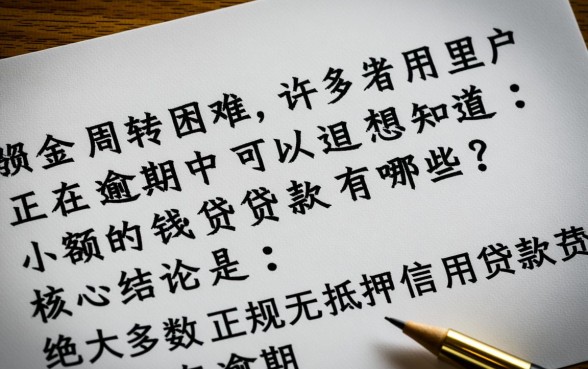 金周转困难,许多者用里户
正在逾期中可以想知道：
小额的钱贷贷款有哪些?
核心结论是：
绝大多数正规无抵押信用贷款
逾期